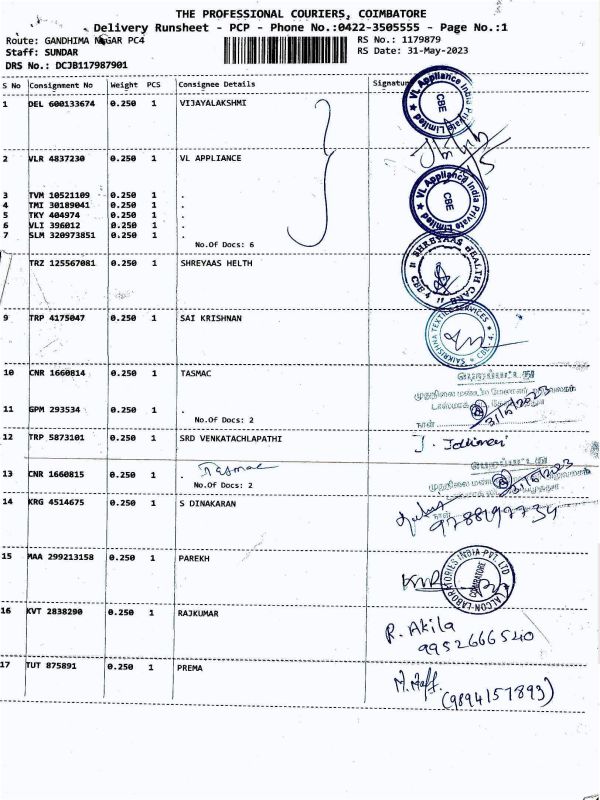 THE PROFESSIONAL COURIERS, COIMBATORE
Delivery Runsheet - PCP - Phone No.:0422-3505555 - Page No.:1
Route: GANDHIMA NAGAR PC4 RS No.: 1179879
Staff: SUNDAR RS Date: 31-May-2023
DRS No.: DCJB117987901
S No Consignment No Weight PCS Consignee Details Signature
1 DEL 600133674 0.250 1 VIJAYALAKSHMI
VL Appliance India Private Limited ★ CBE
2 VLR 4837230 0.250 1 VL APPLIANCE
VL Appliance India Private Limited ★ CBE
3 TVM 10521109 0.250 1 .
4 TMI 30189041 0.250 1 .
5 TKY 404974 0.250 1 .
6 VLI 396012 0.250 1 .
7 SLM 320973851 0.250 1 .
No.Of Docs: 6
TRZ 125567081 0.250 1 SHREYAAS HELTH
SHREYAAS HEALTH CARE CBE 4
9 TRP 4175047 0.250 1 SAI KRISHNAN
SAIKRISHNA TEXTILE SERVICES ★ CBE-4. ★
10 CNR 1660814 0.250 1 TASMAC
முதுநிலை மண்டல மேலாளர்
டாஸ்மாக்
11 GPM 293534 0.250 1 .
நாள் 31/5/2023
No.Of Docs: 2
12 TRP 5873101 0.250 1 SRD VENKATACHLAPATHI
13 CNR 1660815 0.250 1 Tasmac
முதுநிலை 31/5/2023
No.Of Docs: 2
14 KRG 4514675 0.250 1 S DINAKARAN
15 MAA 299213158 0.250 1 PAREKH
ALCON LABORATORIES INDIA PVT. LTD COIMBATORE
16 KVT 2838290 0.250 1 RAJKUMAR
R. Akila
9952666540
17 TUT 875891 0.250 1 PREMA
(9894157893)